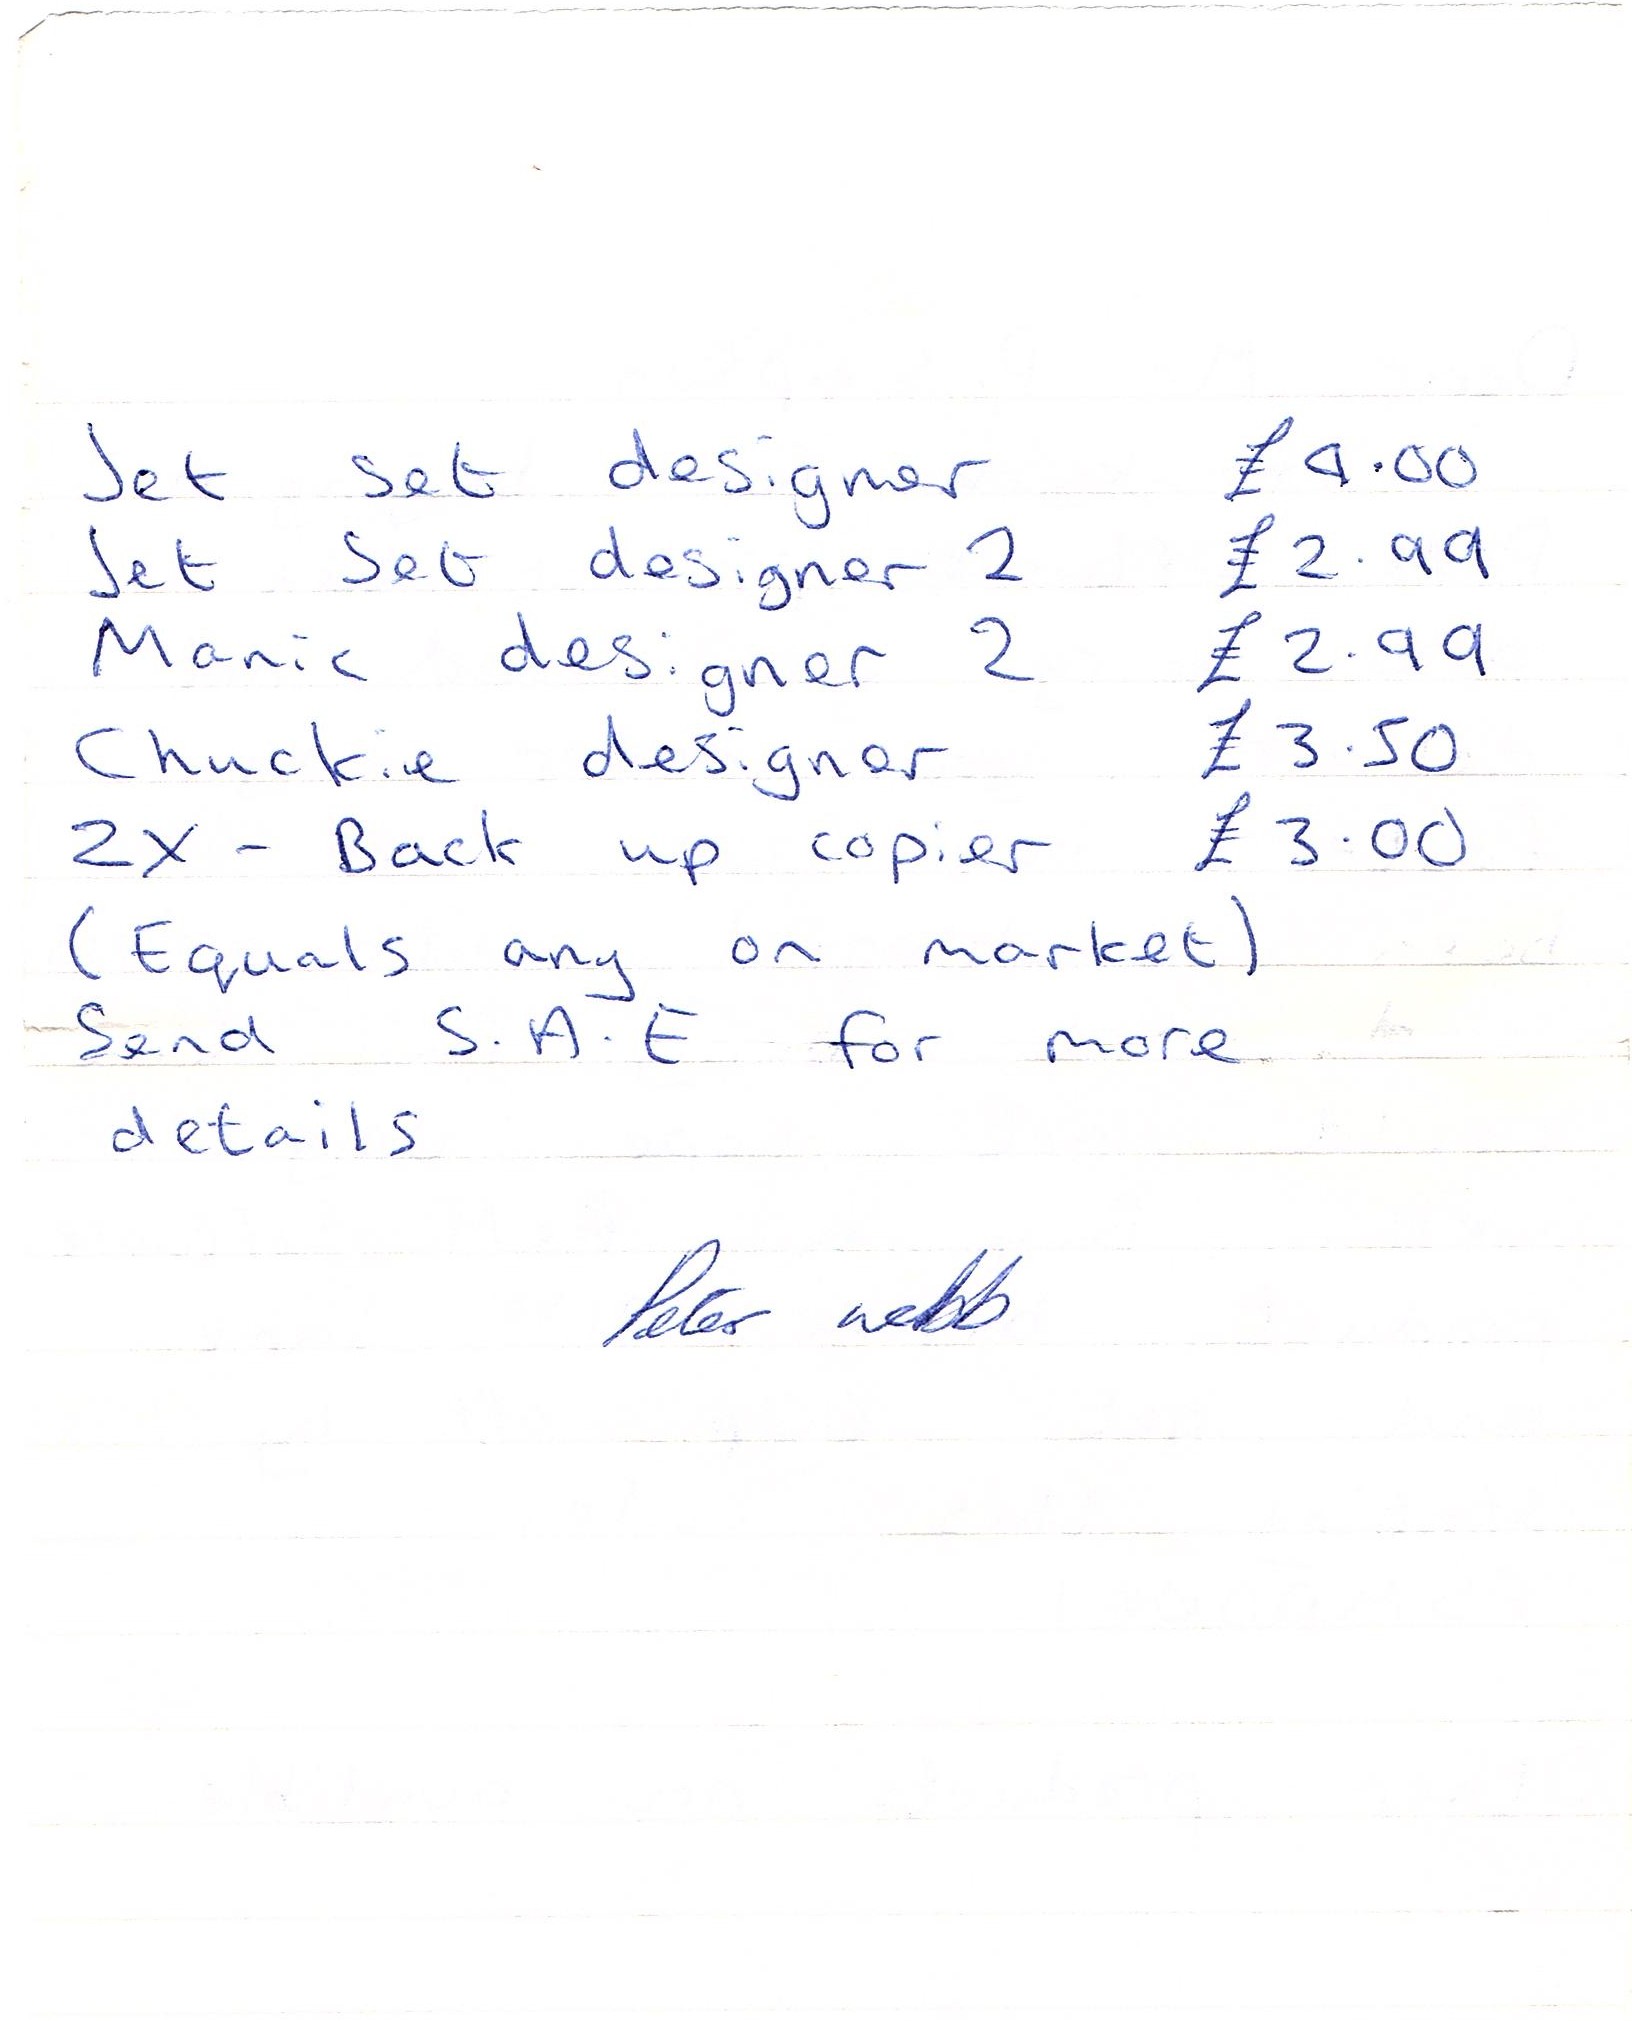 Jet set designer £4.00
Jet Set designer 2 £2.99
Manic designer 2 £2.99
Chuckie designer £3.50
ZX - Back up copier £3.00
(Equals any on market)
Send S.A.E for more
details
Peter webb